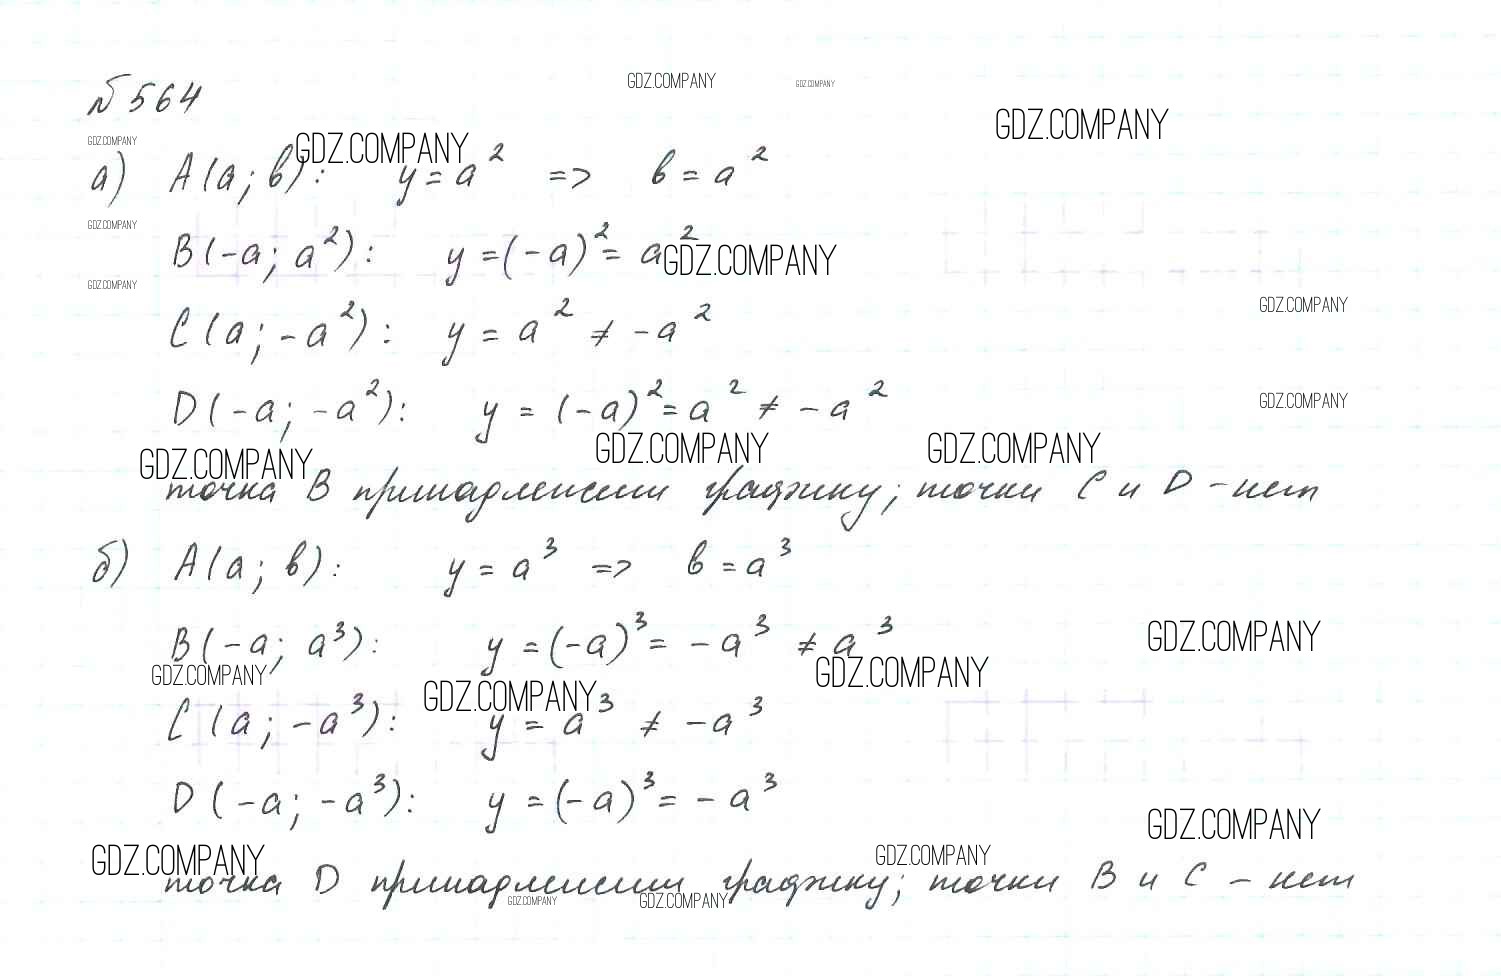 № 564
GDZ.COMPANY GDZ.COMPANY
GDZ.COMPANY
GDZ.COMPANY GDZ.COMPANY
а) A(a; b): y = a² => b = a²
GDZ.COMPANY
B(-a; a²): y = (-a)² = a²
GDZ.COMPANY
GDZ.COMPANY
GDZ.COMPANY
C(a; -a²): y = a² ≠ -a²
D(-a; -a²): y = (-a)² = a² ≠ -a²
GDZ.COMPANY
GDZ.COMPANY GDZ.COMPANY GDZ.COMPANY
точка B принадлежит графику; точки C и D - нет
б) A(a; b): y = a³ => b = a³
B(-a; a³): y = (-a)³ = -a³ ≠ a³
GDZ.COMPANY
GDZ.COMPANY GDZ.COMPANY
GDZ.COMPANY
C(a; -a³): y = a³ ≠ -a³
D(-a; -a³): y = (-a)³ = -a³
GDZ.COMPANY
GDZ.COMPANY GDZ.COMPANY
точка D принадлежит графику; точки B и C - нет
GDZ.COMPANY GDZ.COMPANY